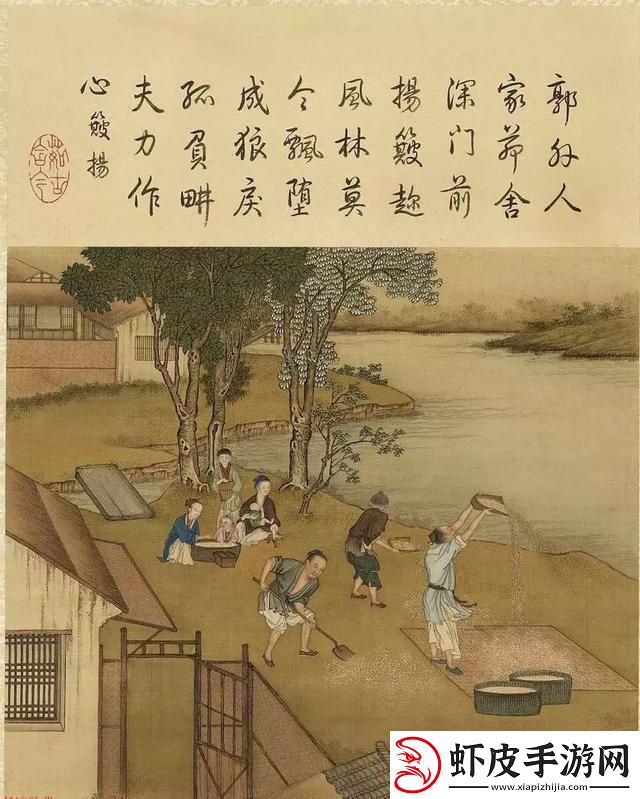 郭外人
家茆舍
深门前
揚簸趂
風林莫
令飄墮
成狼戾
孤負畊
夫力作
心簸揚
茹古含今
虾皮手游网
www.xiapizhijia.com